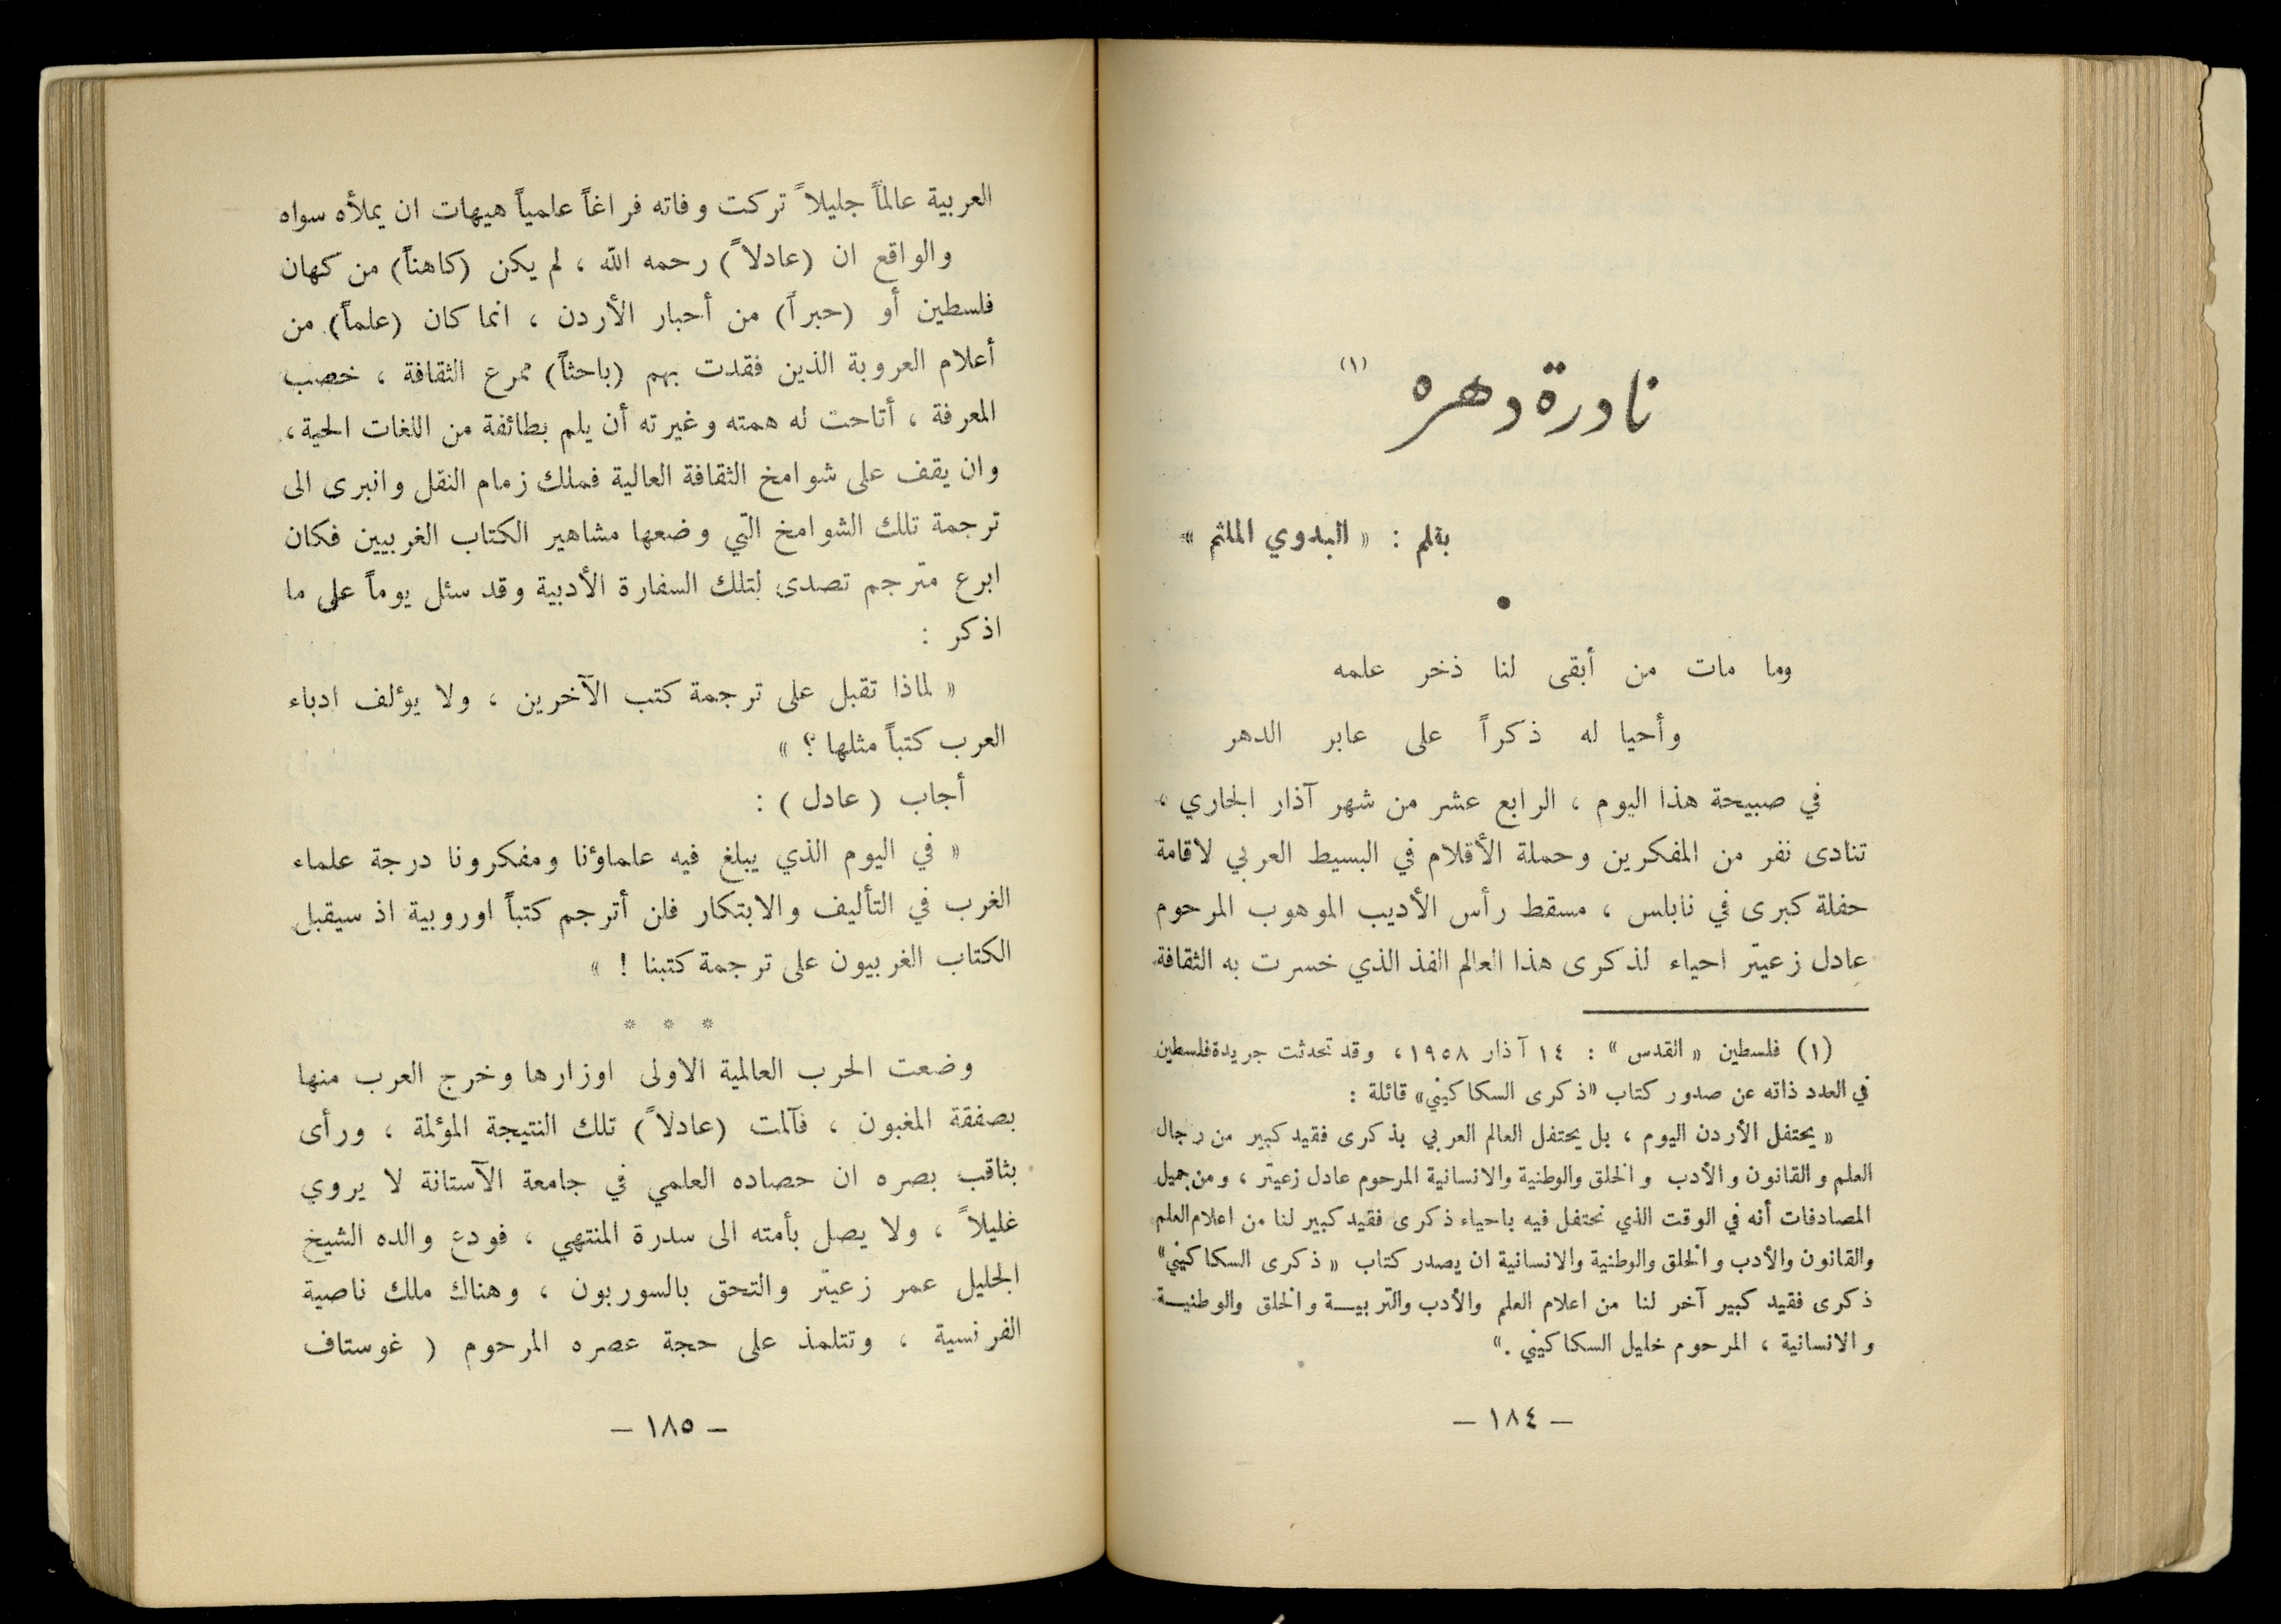 نادرة دهره (١)
بقلم : « البدوي الملثم »
●
وما مات من أبقى لنا ذخر علمه
وأحيا له ذكراً على عابر الدهر
في صبيحة هذا اليوم ، الرابع عشر من شهر آذار الجاري ،
تنادى نفر من المفكرين وحملة الأقلام في البسيط العربي لاقامة
حفلة كبرى في نابلس ، مسقط رأس الأديب الموهوب المرحوم
عادل زعيتر احياء لذكرى هذا العالم الفذ الذي خسرت به الثقافة
(١) فلسطين « القدس » : ١٤ آذار ١٩٥٨ ، وقد تحدثت جريدة فلسطين
في العدد ذاته عن صدور كتاب «ذكرى السكاكيني» قائلة :
« يحتفل الأردن اليوم ، بل يحتفل العالم العربي بذكرى فقيد كبير من رجال
العلم والقانون والأدب والخلق والوطنية والانسانية المرحوم عادل زعيتر ، ومن جميل
المصادفات أنه في الوقت الذي نحتفل فيه باحياء ذكرى فقيد كبير لنا من اعلام العلم
والقانون والأدب والخلق والوطنية والانسانية ان يصدر كتاب « ذكرى السكاكيني»
ذكرى فقيد كبير آخر لنا من اعلام العلم والأدب والتربيــة والخلق والوطنيــة
والانسانية ، المرحوم خليل السكاكيني .»
— ١٨٤ —
العربية عالماً جليلاً تركت وفاته فراغاً علمياً هيهات ان يملأه سواه
والواقع ان (عادلاً) رحمه الله ، لم يكن (كاهناً) من كهان
فلسطين أو (حبراً) من أحبار الأردن ، انما كان (علماً) من
أعلام العروبة الذين فقدت بهم (باحثاً) ممرع الثقافة ، خصب
المعرفة ، أتاحت له همته وغيرته أن يلم بطائفة من اللغات الحية ،
وان يقف على شوامخ الثقافة العالية فملك زمام النقل وانبرى الى
ترجمة تلك الشوامخ التي وضعها مشاهير الكتاب الغربيين فكان
ابرع مترجم تصدى لتلك السفارة الأدبية وقد سئل يوماً على ما
اذكر :
« لماذا تقبل على ترجمة كتب الآخرين ، ولا يؤلف ادباء
العرب كتباً مثلها ؟ »
أجاب ( عادل ) :
« في اليوم الذي يبلغ فيه علماؤنا ومفكرونا درجة علماء
الغرب في التأليف والابتكار فلن أترجم كتباً اوروبية اذ سيقبل
الكتاب الغربيون على ترجمة كتبنا ! »
* * *
وضعت الحرب العالمية الاولى اوزارها وخرج العرب منها
بصفقة المغبون ، فآلمت (عادلاً) تلك النتيجة المؤلمة ، ورأى
بثاقب بصره ان حصاده العلمي في جامعة الآستانة لا يروي
غليلاً ، ولا يصل بأمته الى سدرة المنتهي ، فودع والده الشيخ
الجليل عمر زعيتر والتحق بالسوربون ، وهناك ملك ناصية
الفرنسية ، وتتلمذ على حجة عصره المرحوم ( غوستاف
— ١٨٥ —